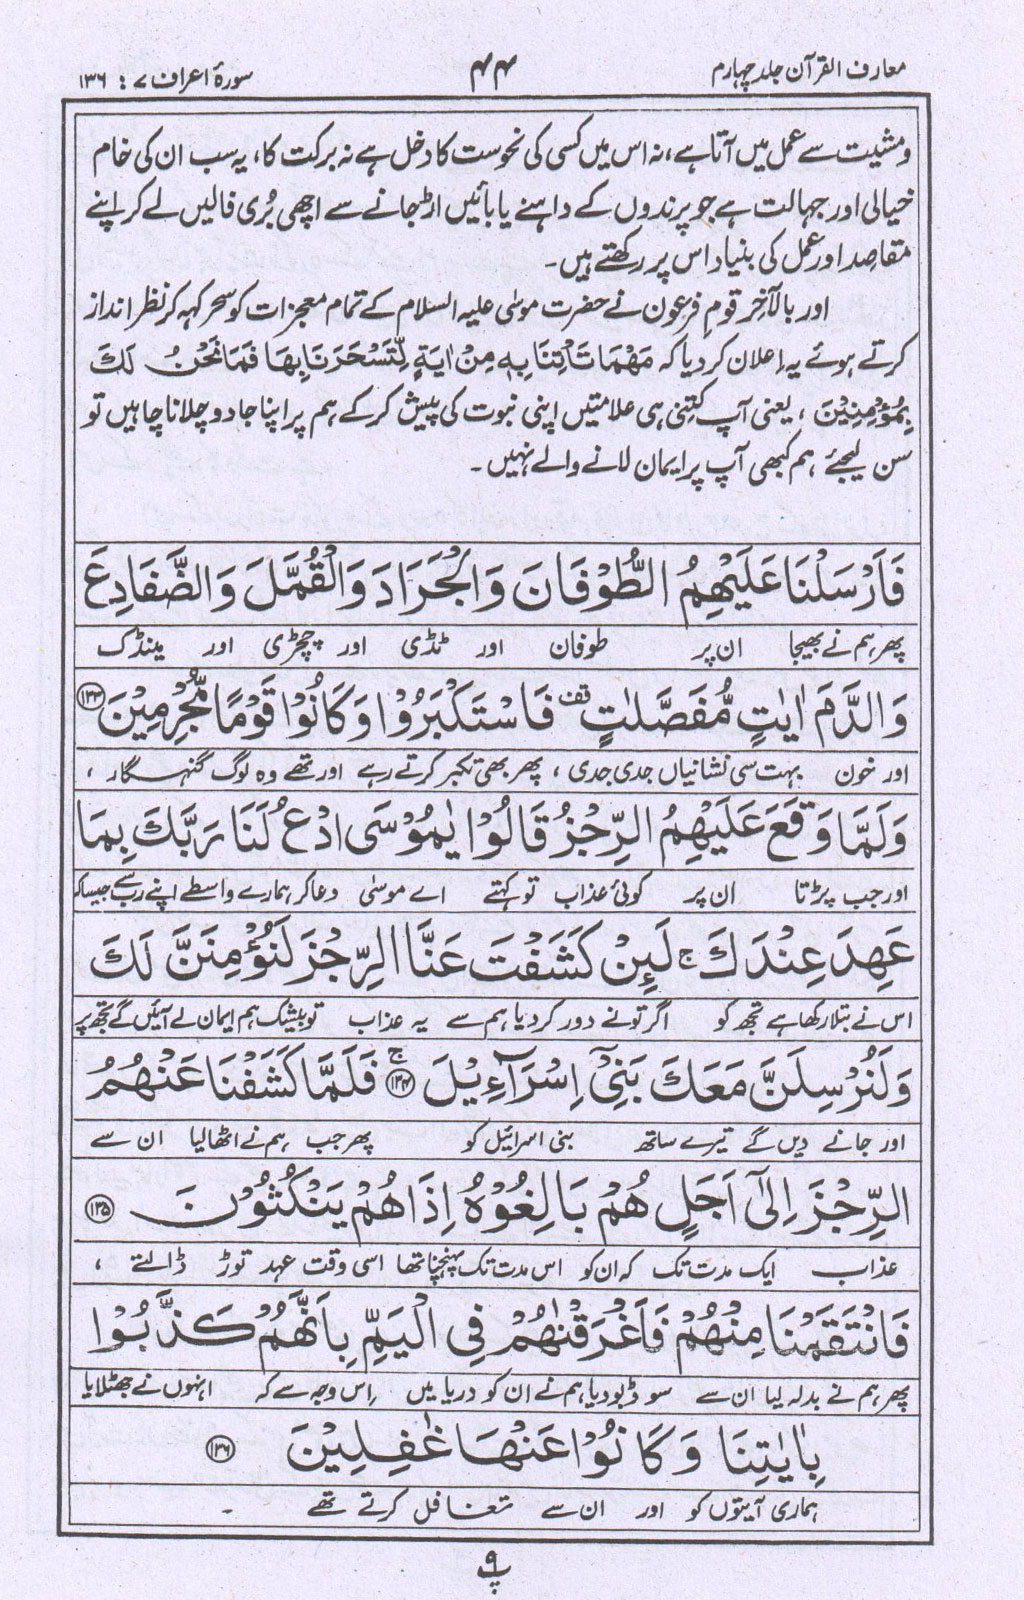 معارف القرآن جلد چہارم
۴۴
سورۂ اعراف ۷ : ۱۳۶
و مشیت سے عمل میں آتا ہے، نہ اس میں کسی کی نحوست کا دخل ہے نہ برکت کا، یہ سب ان کی خام
خیالی اور جہالت ہے جو پرندوں کے داہنے یا بائیں اڑجانے سے اچھی بُری فالیں لے کر اپنے
مقاصد اور عمل کی بنیاد اس پر رکھتے ہیں۔
اور بالآخر قومِ فرعون نے حضرت موسٰی علیہ السلام کے تمام معجزات کو سحر کہہ کر نظر انداز
کرتے ہوئے یہ اِعلان کر دیا کہ مَهْمَا تَاْتِنَا بِهٖ مِنْ اٰيَةٍ لِّتَسْحَرَنَا بِهَا فَمَا نَحْنُ لَكَ
بِمُؤْمِنِيْنَ ، یعنی آپ کتنی ہی علامتیں اپنی نبوت کی پیش کر کے ہم پر اپنا جادو چلانا چاہیں تو
سن لیجئے ہم کبھی آپ پر ایمان لانے والے نہیں۔
فَاَرْسَلْنَا عَلَيْهِمُ الطُّوْفَانَ وَالْجَرَادَ وَالْقُمَّلَ وَالضَّفَادِعَ
پھر ہم نے بھیجا ان پر طوفان اور ٹڈی اور چچڑی اور مینڈک
وَالدَّمَ اٰيٰتٍ مُّفَصَّلٰتٍ قف فَاسْتَكْبَرُوْا وَكَانُوْا قَوْمًا مُّجْرِمِيْنَ ۱۳۳
اور خون بہت سی نشانیاں جدی جدی ، پھر بھی تکبر کرتے رہے اور تھے وہ لوگ گنہگار ،
وَلَمَّا وَقَعَ عَلَيْهِمُ الرِّجْزُ قَالُوْا يٰمُوْسَى ادْعُ لَنَا رَبَّكَ بِمَا
اور جب پڑتا ان پر کوئی عذاب تو کہتے اے موسٰی دعا کر ہمارے واسطے اپنے رب سے جیسا کہ
عَهِدَ عِنْدَكَ ج لَىِٕنْ كَشَفْتَ عَنَّا الرِّجْزَ لَنُؤْمِنَنَّ لَكَ
اس نے بتلا رکھا ہے تجھ کو اگر تو نے دور کر دیا ہم سے یہ عذاب تو بیشک ہم ایمان لے آئیں گے تجھ پر
وَلَنُرْسِلَنَّ مَعَكَ بَنِيْۤ اِسْرَآءِيْلَ ج ۱۳۴ فَلَمَّا كَشَفْنَا عَنْهُمُ
اور جانے دیں گے تیرے ساتھ بنی اسرائیل کو پھر جب ہم نے اٹھا لیا ان سے
الرِّجْزَ اِلٰۤى اَجَلٍ هُمْ بَالِغُوْهُ اِذَا هُمْ يَنْكُثُوْنَ ۱۳۵
عذاب ایک مدت تک کہ ان کو اس مدت تک پہنچنا تھا اسی وقت عہد توڑ ڈالتے ،
فَانْتَقَمْنَا مِنْهُمْ فَاَغْرَقْنٰهُمْ فِي الْيَمِّ بِاَنَّهُمْ كَذَّبُوْا
پھر ہم نے بدلہ لیا ان سے سو ڈبو دیا ہم نے ان کو دریا میں اِس وجہ سے کہ انہوں نے جھٹلایا
بِاٰيٰتِنَا وَكَانُوْا عَنْهَا غٰفِلِيْنَ ۱۳۶
ہماری آیتوں کو اور ان سے تغافل کرتے تھے ۔